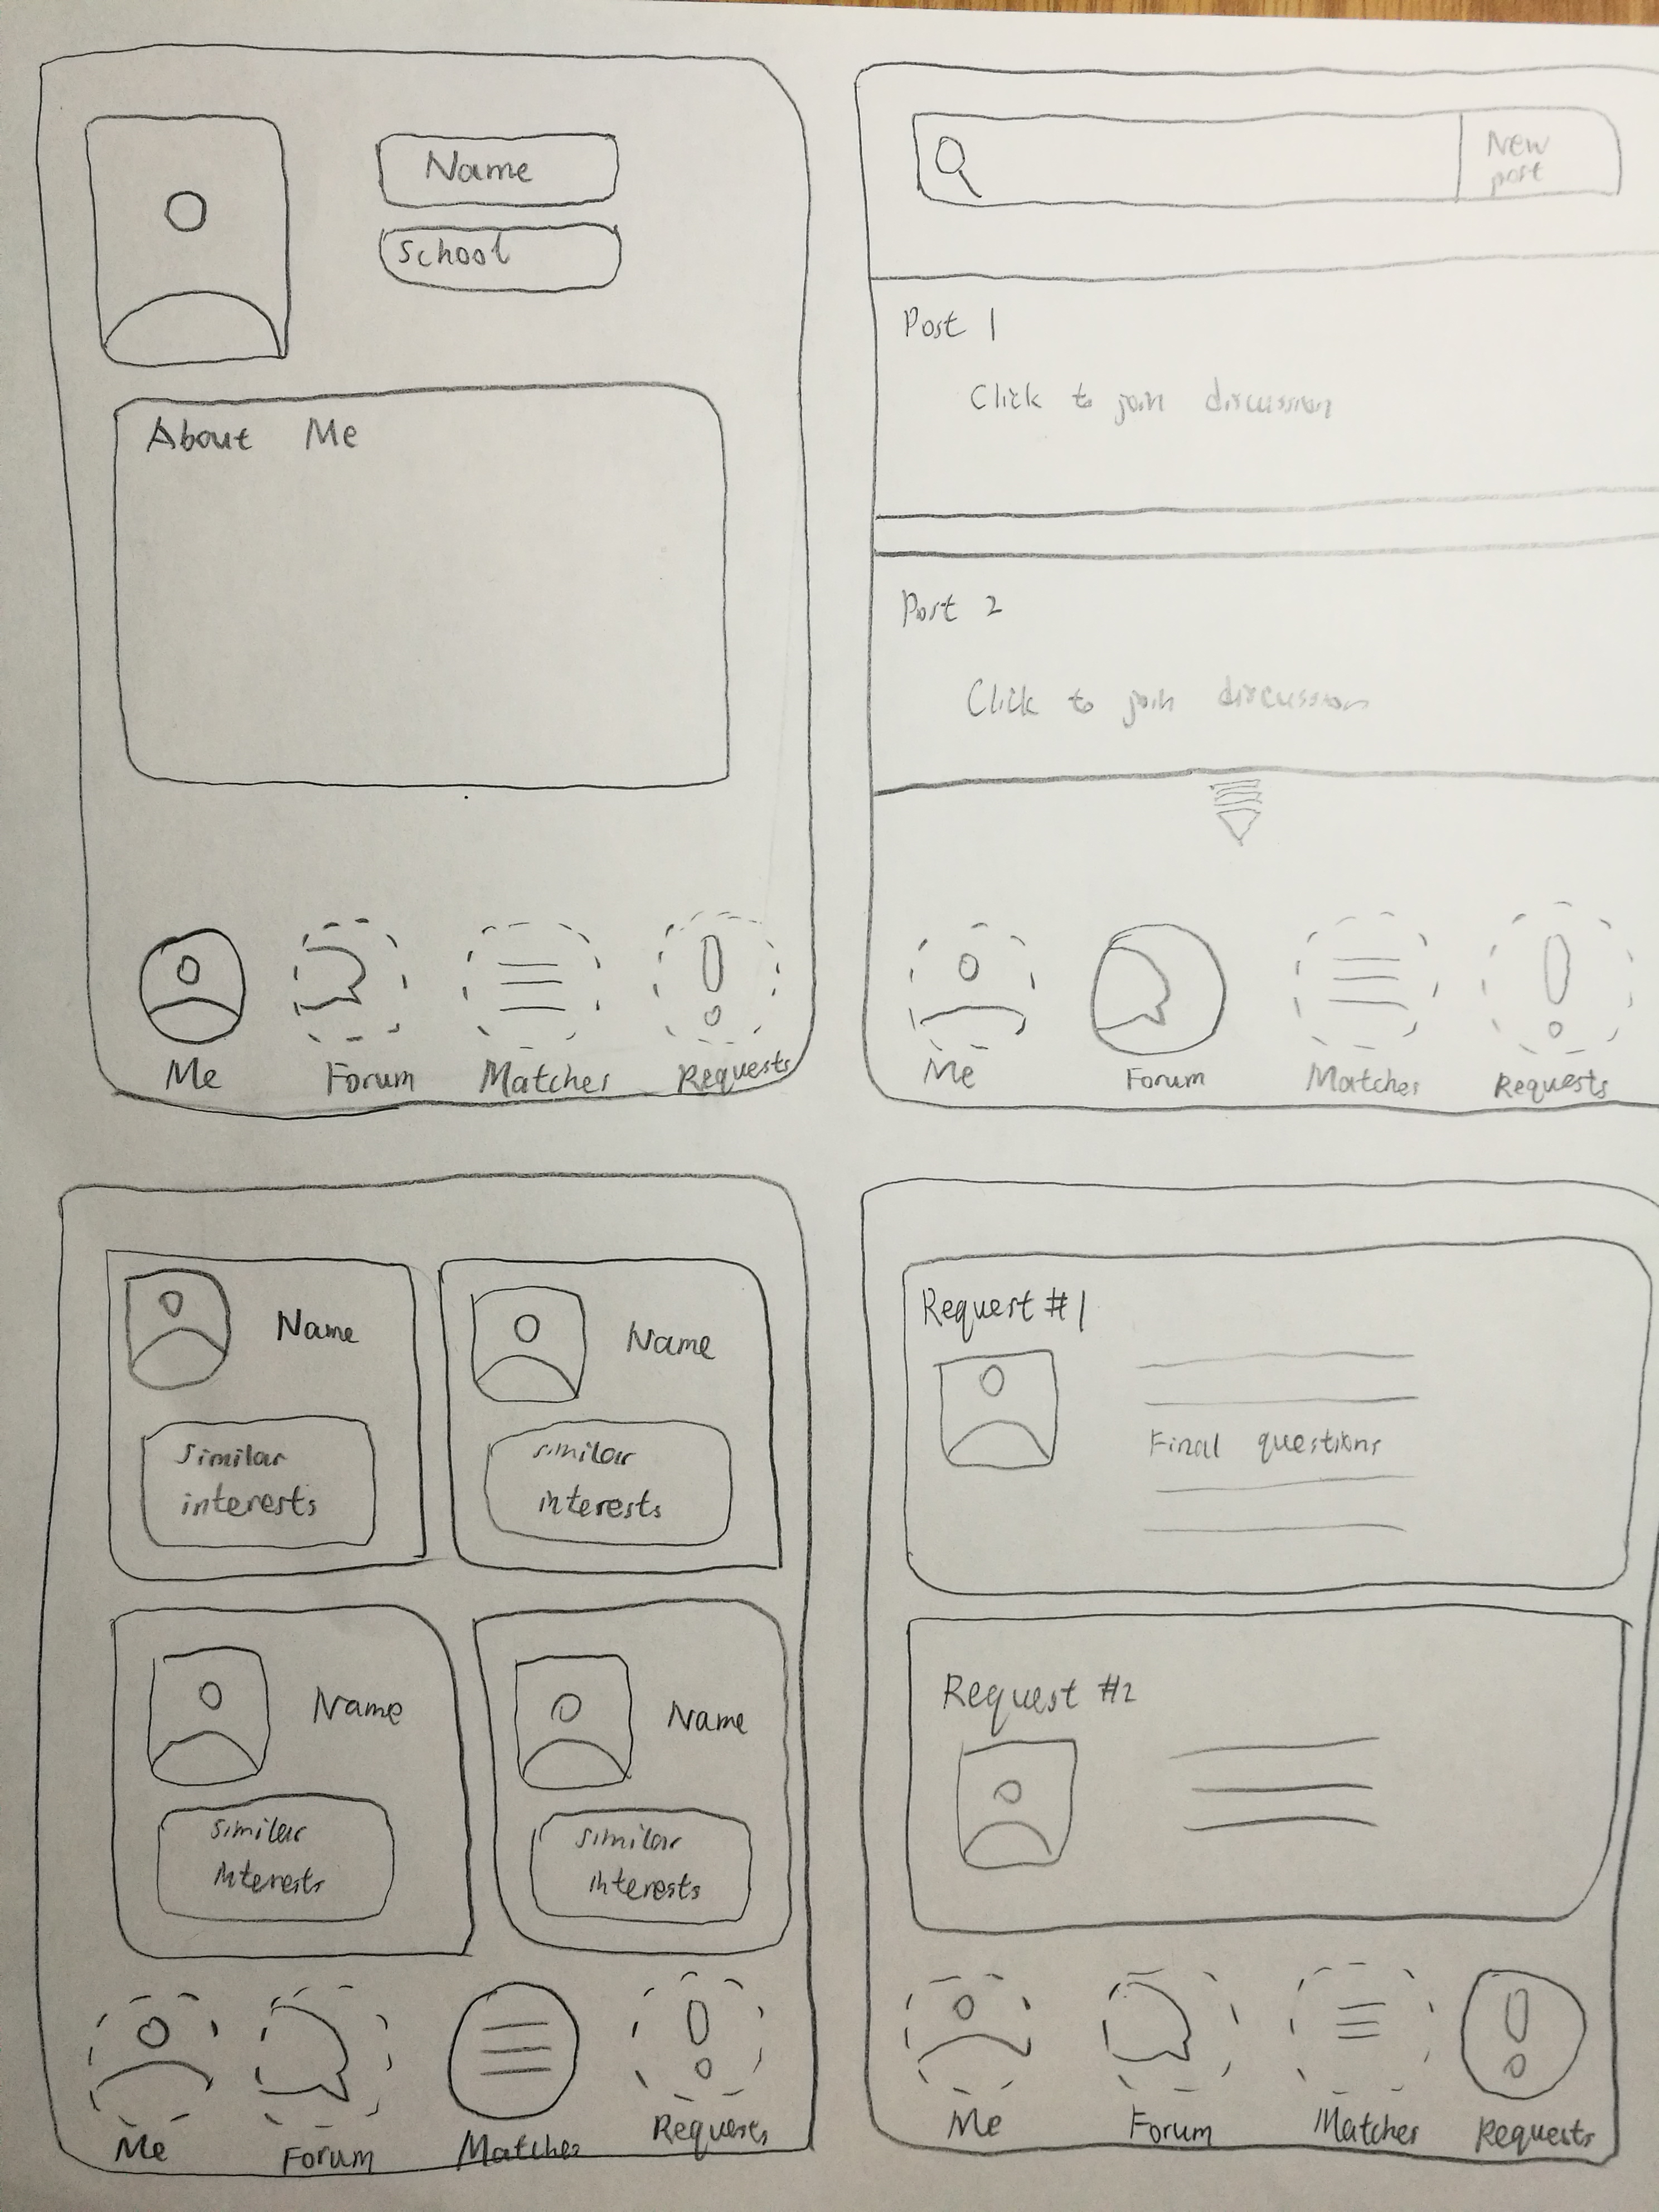 Name
School
About Me
Me Forum Matches Requests
New
post
Post 1
Click to join discussion
Post 2
Click to join discussion
Me Forum Matches Requests
Name
Similar
interests
Name
similar
interests
Name
similar
interests
Name
similar
interests
Me Forum Matches Requests
Request #1
Final questions
Request #2
Me Forum Matches Requests